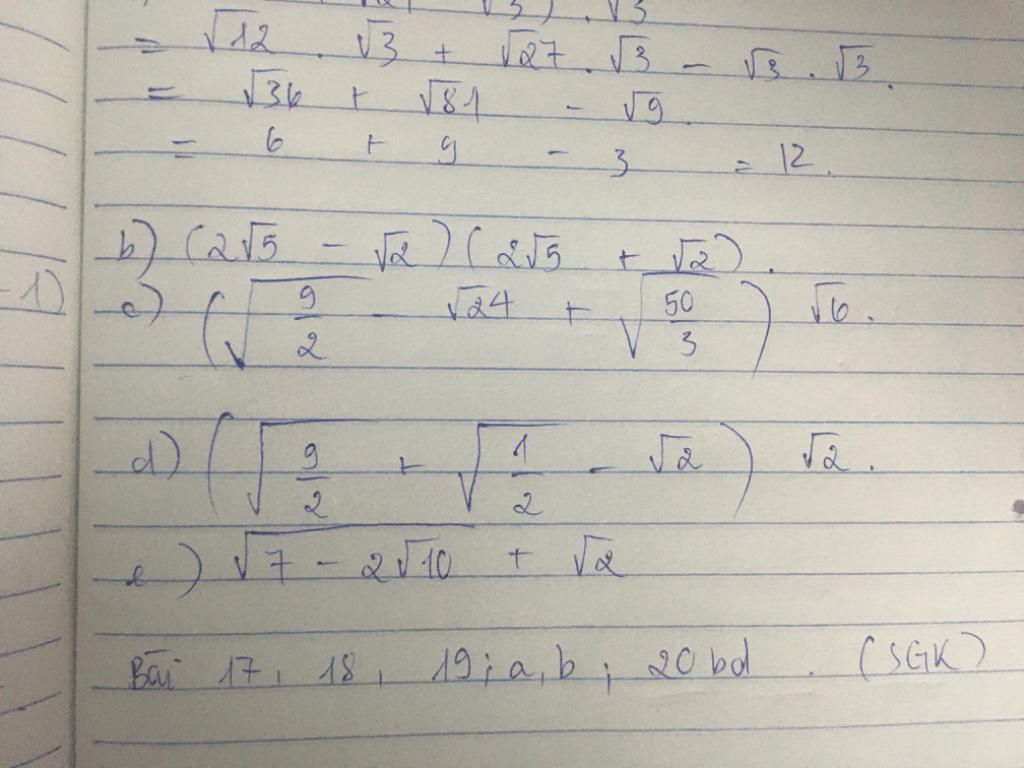 √3) . √3
= √12 . √3 + √27 . √3 - √3 . √3.
= √36 + √81 - √9.
= 6 + 9 - 3 = 12.
b) (2√5 - √2)(2√5 + √2).
-1)
c) (√(9/2) - √24 + √(50/3)) √6.
d) (√(9/2) + √(1/2) - √2) √2.
e) √(7 - 2√10) + √2
Bài 17, 18, 19; a, b; 20 bd. (SGK)